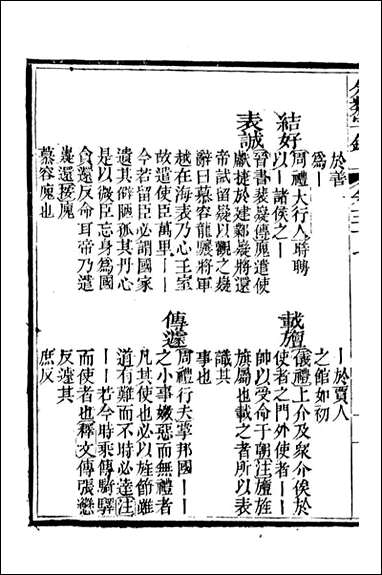 於善
爲丨
結好
周禮大行人時聘
以丨諸侯之丨
表誠
晉書裴嶷傳廆遣使
獻捷於建鄴嶷將還
帝試留嶷以觀之嶷
辭曰慕容龍驤將軍
越在海表乃心王室
故遣使臣萬里丨丨
今若留臣必謂國家
遺其僻陋孤其丹心
是以微臣忘身爲國
貪還反命耳帝乃遣
嶷還授廆
慕容廆也
丨於賈人
之館如初
載旜
儀禮上介及衆介俟於
使者之門外使者丨丨
帥以受命于朝注旜旌
旗屬也載之者所以表
識其
事也
傳遽
周禮行夫掌邦國丨丨
之小事媺惡而無禮者
凡其使也必以旌節雖
道有難而不時必達注
丨丨若今時乘傳騎驛
而使者也釋文傳張戀
反遽其
庶反